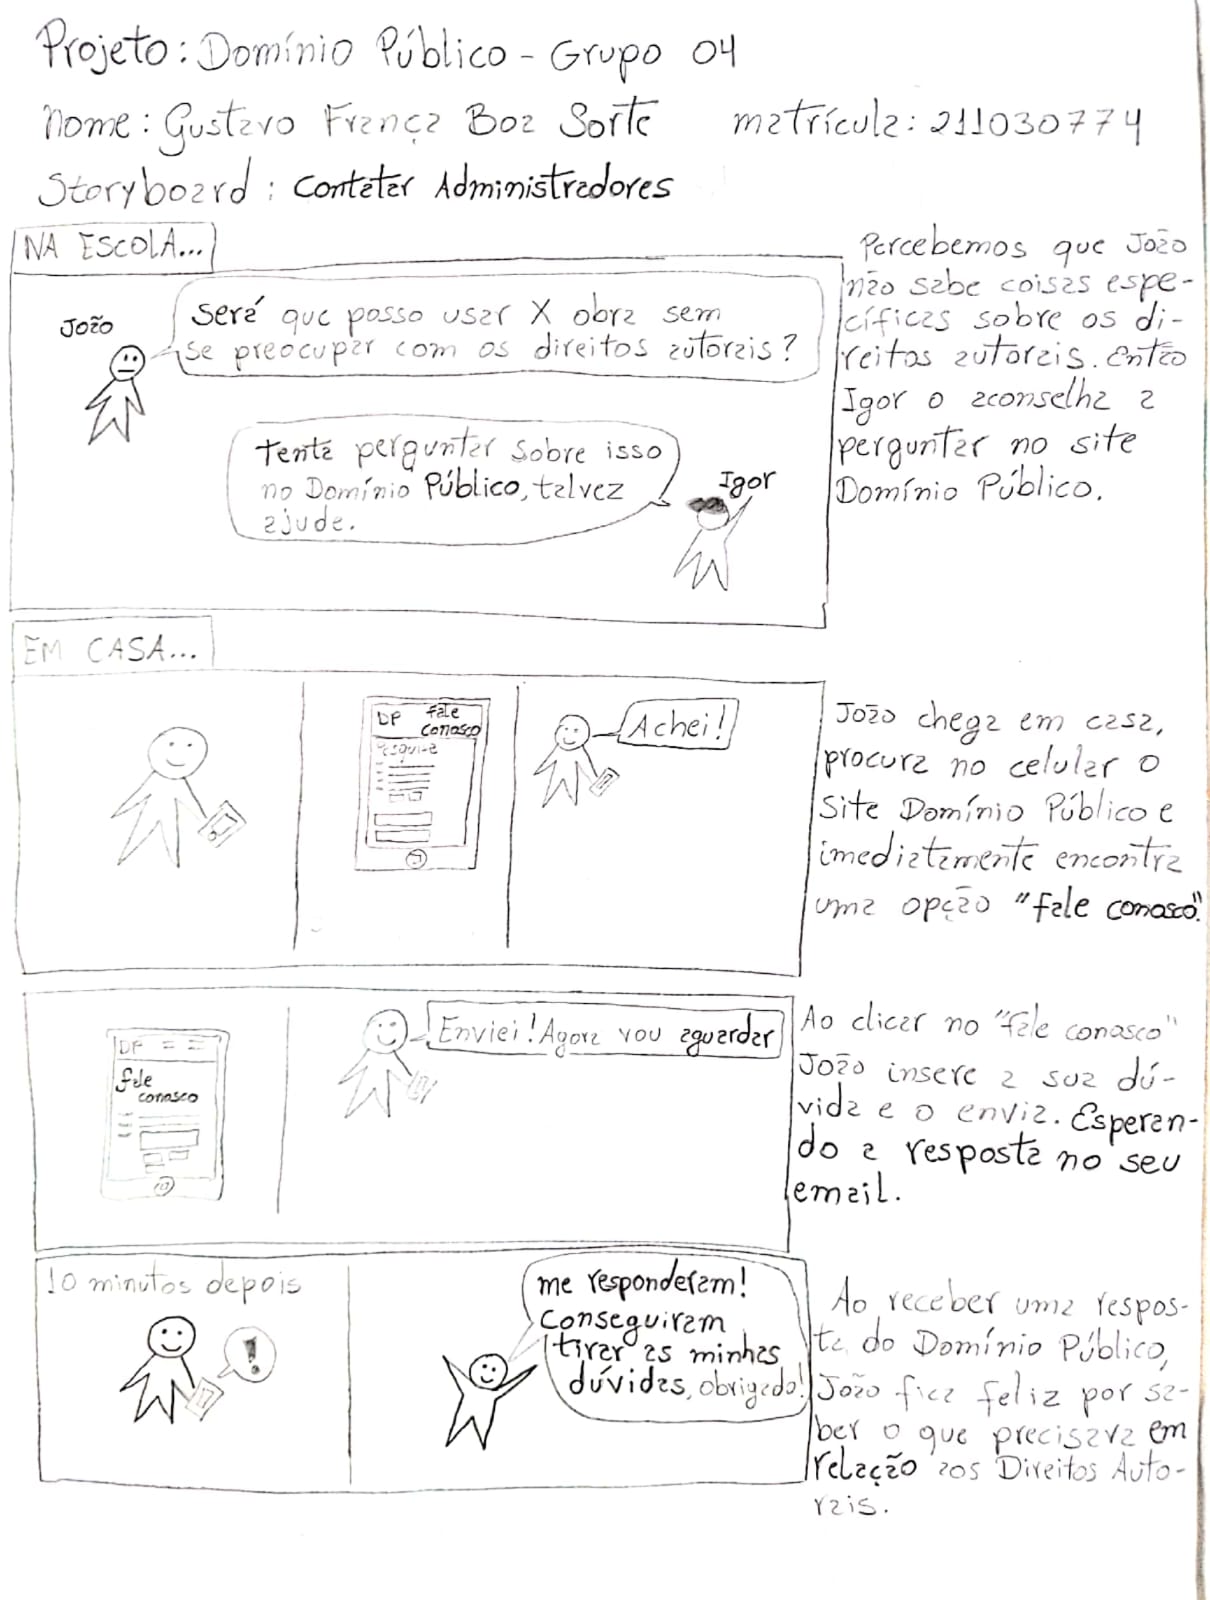 Projeto: Domínio Público - Grupo 04
Nome: Gustavo França Boa Sorte matrícula: 211030774
Storyboard: Contatar Administradores
NA ESCOLA...
João
Será que posso usar X obra sem
se preocupar com os direitos autorais?
Tente perguntar sobre isso
no Domínio Público, talvez
ajude.
Igor
Percebemos que João
não sabe coisas espe-
cíficas sobre os di-
reitos autorais. Então
Igor o aconselha a
perguntar no site
Domínio Público.
EM CASA...
DP fale
conosco
Pesquisa
Achei!
João chega em casa,
procura no celular o
Site Domínio Público e
imediatamente encontra
uma opção "fale conosco".
DP
fale
conosco
Enviei! Agora vou aguardar
Ao clicar no "fale conosco"
João insere a sua dú-
vida e o envia. Esperan-
do a resposta no seu
email.
10 minutos depois
!
me responderam!
Conseguiram
tirar as minhas
dúvidas, obrigado!
Ao receber uma respos-
ta do Domínio Público,
João fica feliz por sa-
ber o que precisava em
relação aos Direitos Auto-
rais.